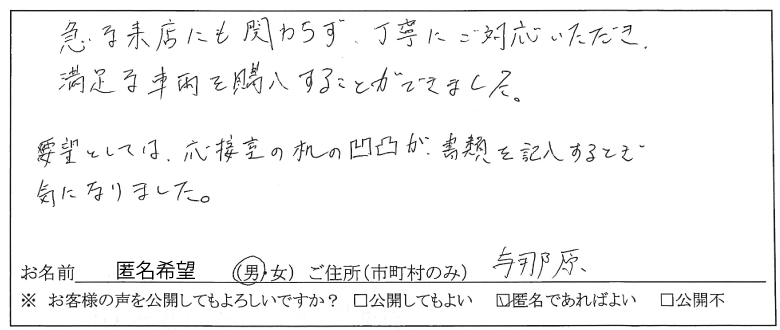 急な来店にも関わらず、丁寧にご対応いただき、
満足な車両を購入することができました。
要望としては、応接室の机の凹凸が、書類を記入するとき
気になりました。
お名前 匿名希望 (男・女) ご住所(市町村のみ) 与那原
※ お客様の声を公開してもよろしいですか? □公開してもよい ☑匿名であればよい □公開不